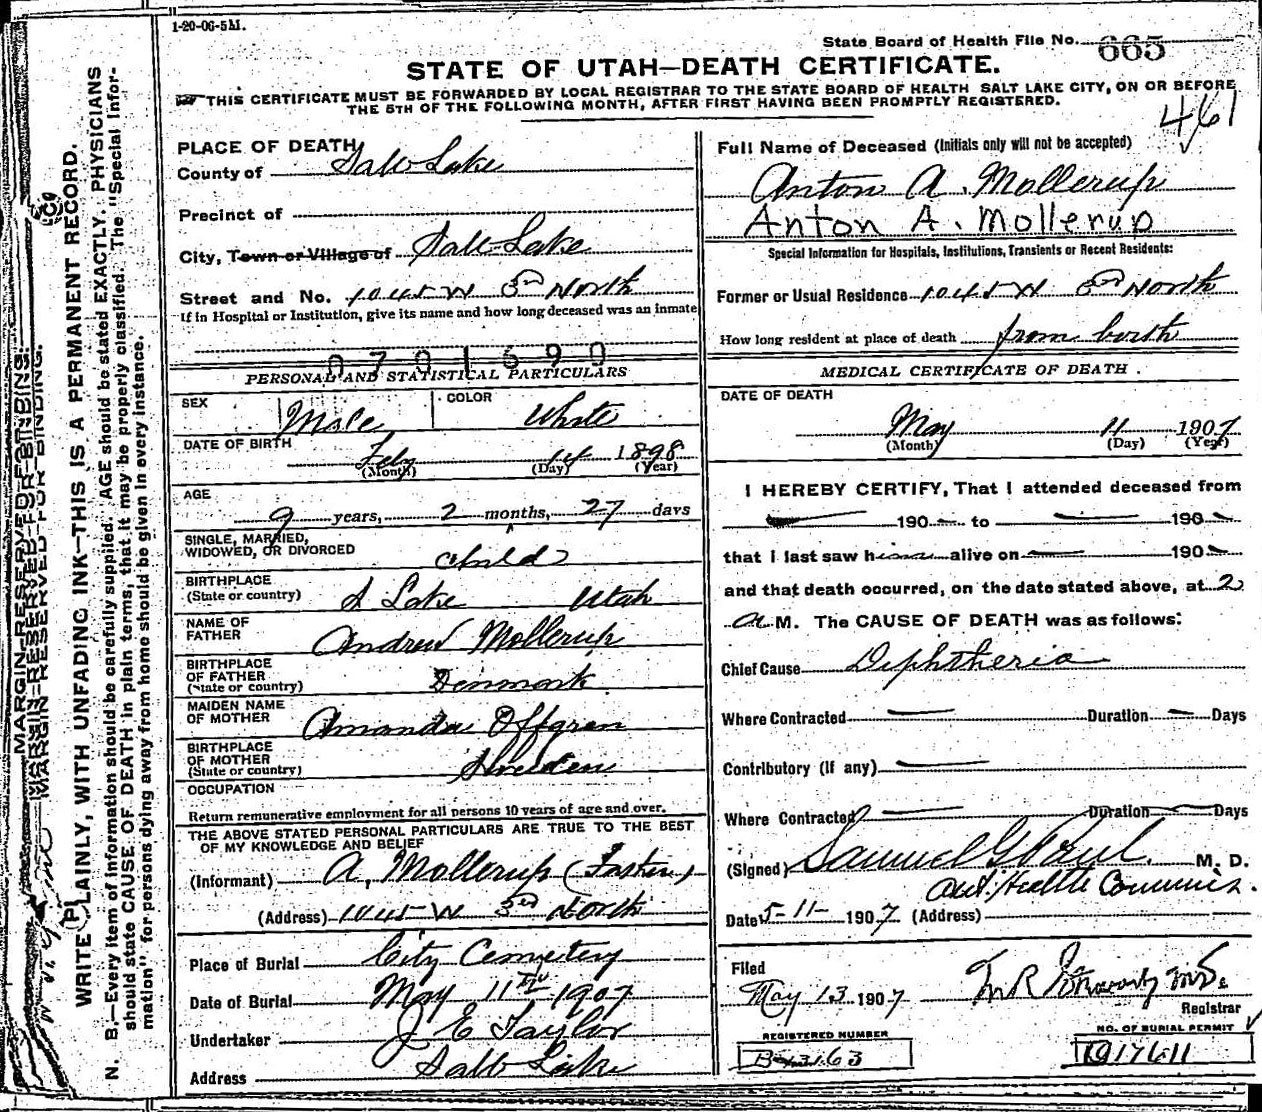 1-20-06-5M.
State Board of Health File No. 665
STATE OF UTAH—DEATH CERTIFICATE.
THIS CERTIFICATE MUST BE FORWARDED BY LOCAL REGISTRAR TO THE STATE BOARD OF HEALTH SALT LAKE CITY, ON OR BEFORE
THE 5TH OF THE FOLLOWING MONTH, AFTER FIRST HAVING BEEN PROMPTLY REGISTERED.
461
PLACE OF DEATH
County of Salt Lake
Precinct of
City, Town or Village of Salt Lake
Street and No. 1045 W 3rd North
If in Hospital or Institution, give its name and how long deceased was an inmate
0701690
PERSONAL AND STATISTICAL PARTICULARS
SEX Male COLOR White
DATE OF BIRTH
Feby 14 1898
(Month) (Day) (Year)
AGE
9 years, 2 months, 27 days
SINGLE, MARRIED,
WIDOWED, OR DIVORCED Child
BIRTHPLACE
(State or country) S Lake Utah
NAME OF
FATHER Andrew Mollerup
BIRTHPLACE
OF FATHER
(State or country) Denmark
MAIDEN NAME
OF MOTHER Amanda Offgren
BIRTHPLACE
OF MOTHER
(State or country) Sweden
OCCUPATION
Return remunerative employment for all persons 10 years of age and over.
THE ABOVE STATED PERSONAL PARTICULARS ARE TRUE TO THE BEST
OF MY KNOWLEDGE AND BELIEF
(Informant) A, Mollerup (Father)
(Address) 1045 W 3rd North
Place of Burial City Cemetery
Date of Burial May 11th 1907
Undertaker J E Taylor
Address Salt Lake
Full Name of Deceased (Initials only will not be accepted)
Anton A. Mollerup
Anton A. Mollerup
Special Information for Hospitals, Institutions, Transients or Recent Residents:
Former or Usual Residence 1045 W 3rd North
How long resident at place of death from birth
MEDICAL CERTIFICATE OF DEATH.
DATE OF DEATH
May 11 1907
(Month) (Day) (Year)
I HEREBY CERTIFY, That I attended deceased from
190 to 190
that I last saw him alive on 190
and that death occurred, on the date stated above, at 2
a M. The CAUSE OF DEATH was as follows:
Chief Cause Diphtheria
Where Contracted Duration Days
Contributory (If any)
Where Contracted Duration Days
(Signed) Samuel G Paul. M. D.
Health Commis.
Date 5-11- 1907 (Address)
Filed
May 13 1907
Registrar
REGISTERED NUMBER
B-3163
NO. OF BURIAL PERMIT
MARGIN RESERVED FOR BINDING.
MARGIN RESERVED FOR BINDING.
WRITE PLAINLY, WITH UNFADING INK—THIS IS A PERMANENT RECORD.
N. B.—Every item of information should be carefully supplied. AGE should be stated EXACTLY. PHYSICIANS
should state CAUSE OF DEATH in plain terms, that it may be properly classified. The "Special Infor-
mation" for persons dying away from home should be given in every instance.